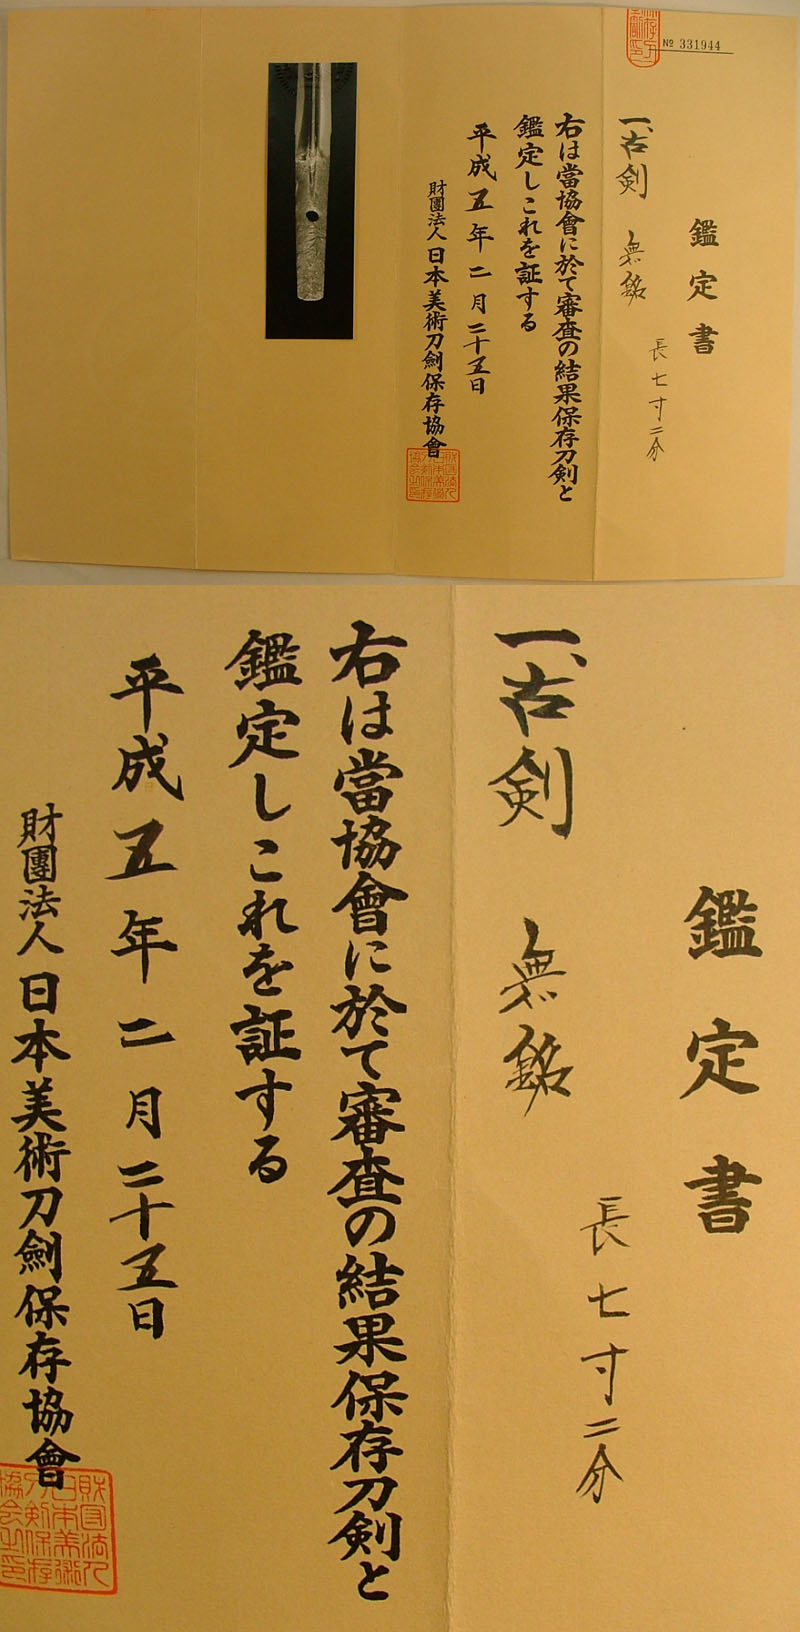 № 331944
鑑定書
一、古剣 無銘
長七寸二分
右は當協會に於て審査の結果保存刀剣と
鑑定しこれを証する
平成五年二月二十五日
財團法人日本美術刀劍保存協會
鑑定書
一、古剣 無銘
長七寸二分
右は當協會に於て審査の結果保存刀剣と
鑑定しこれを証する
平成五年二月二十五日
財團法人日本美術刀劍保存協會